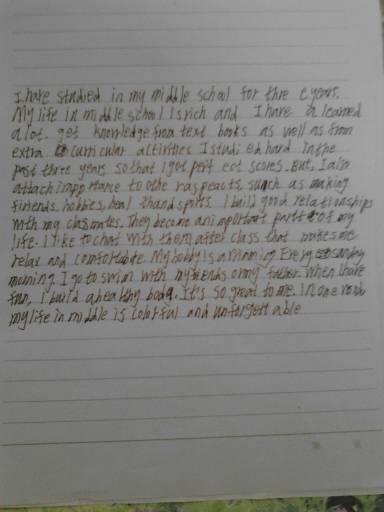 I have studied in my middle school for thre e years.
My life in middle school is rich and I have a learned
a lot. get knowledge from text books as well as from
extra curricular activities I studi ed hard In the
past three years so that I got perf ect scores. But, I also
attach importance to othe raspeacts such as making
firiends. hobbies, heal thandsprits. I build good relationships
with my clasmates. They become an importart part of my
life. I like to chat with them after class that makes me
relax and comfortabte. My hobby is swimming. Every sunday
morning I go to swim with my friends or my father. When I have
fun, I build a healthy body. It's so great to me. In one word
my life in middle is colorful and unforgett able